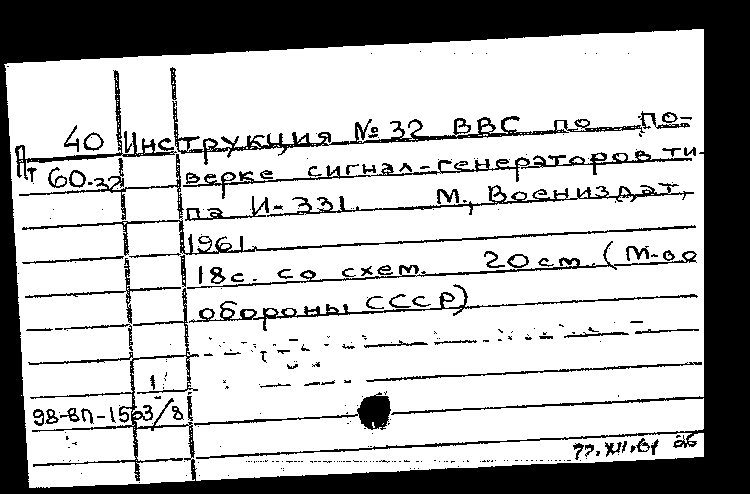 40 Инструкция №32 ВВС по по-
Пт 60-32 верке сигнал-генераторов ти-
па И-331. М., Воениздат,
1961.
18с. со схем. 20 см. (М-во
обороны СССР)
1/
98-8П-1563/8
XII.61